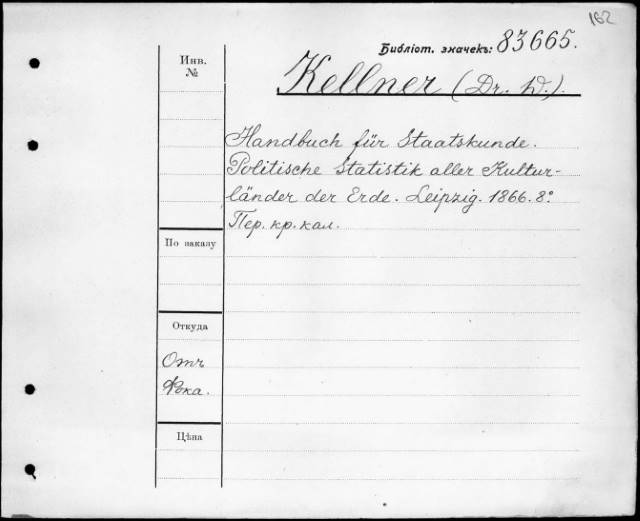 162
Библіот. значекъ: 83665.
Инв.
№
Kellner (Dr. W.).
Handbuch für Staatskunde.
Politische Statistik aller Kultur-
länder der Erde. Leipzig. 1866. 8º
Пер. кр. кал.
По заказу
Откуда
Отъ
Фка.
Цѣна